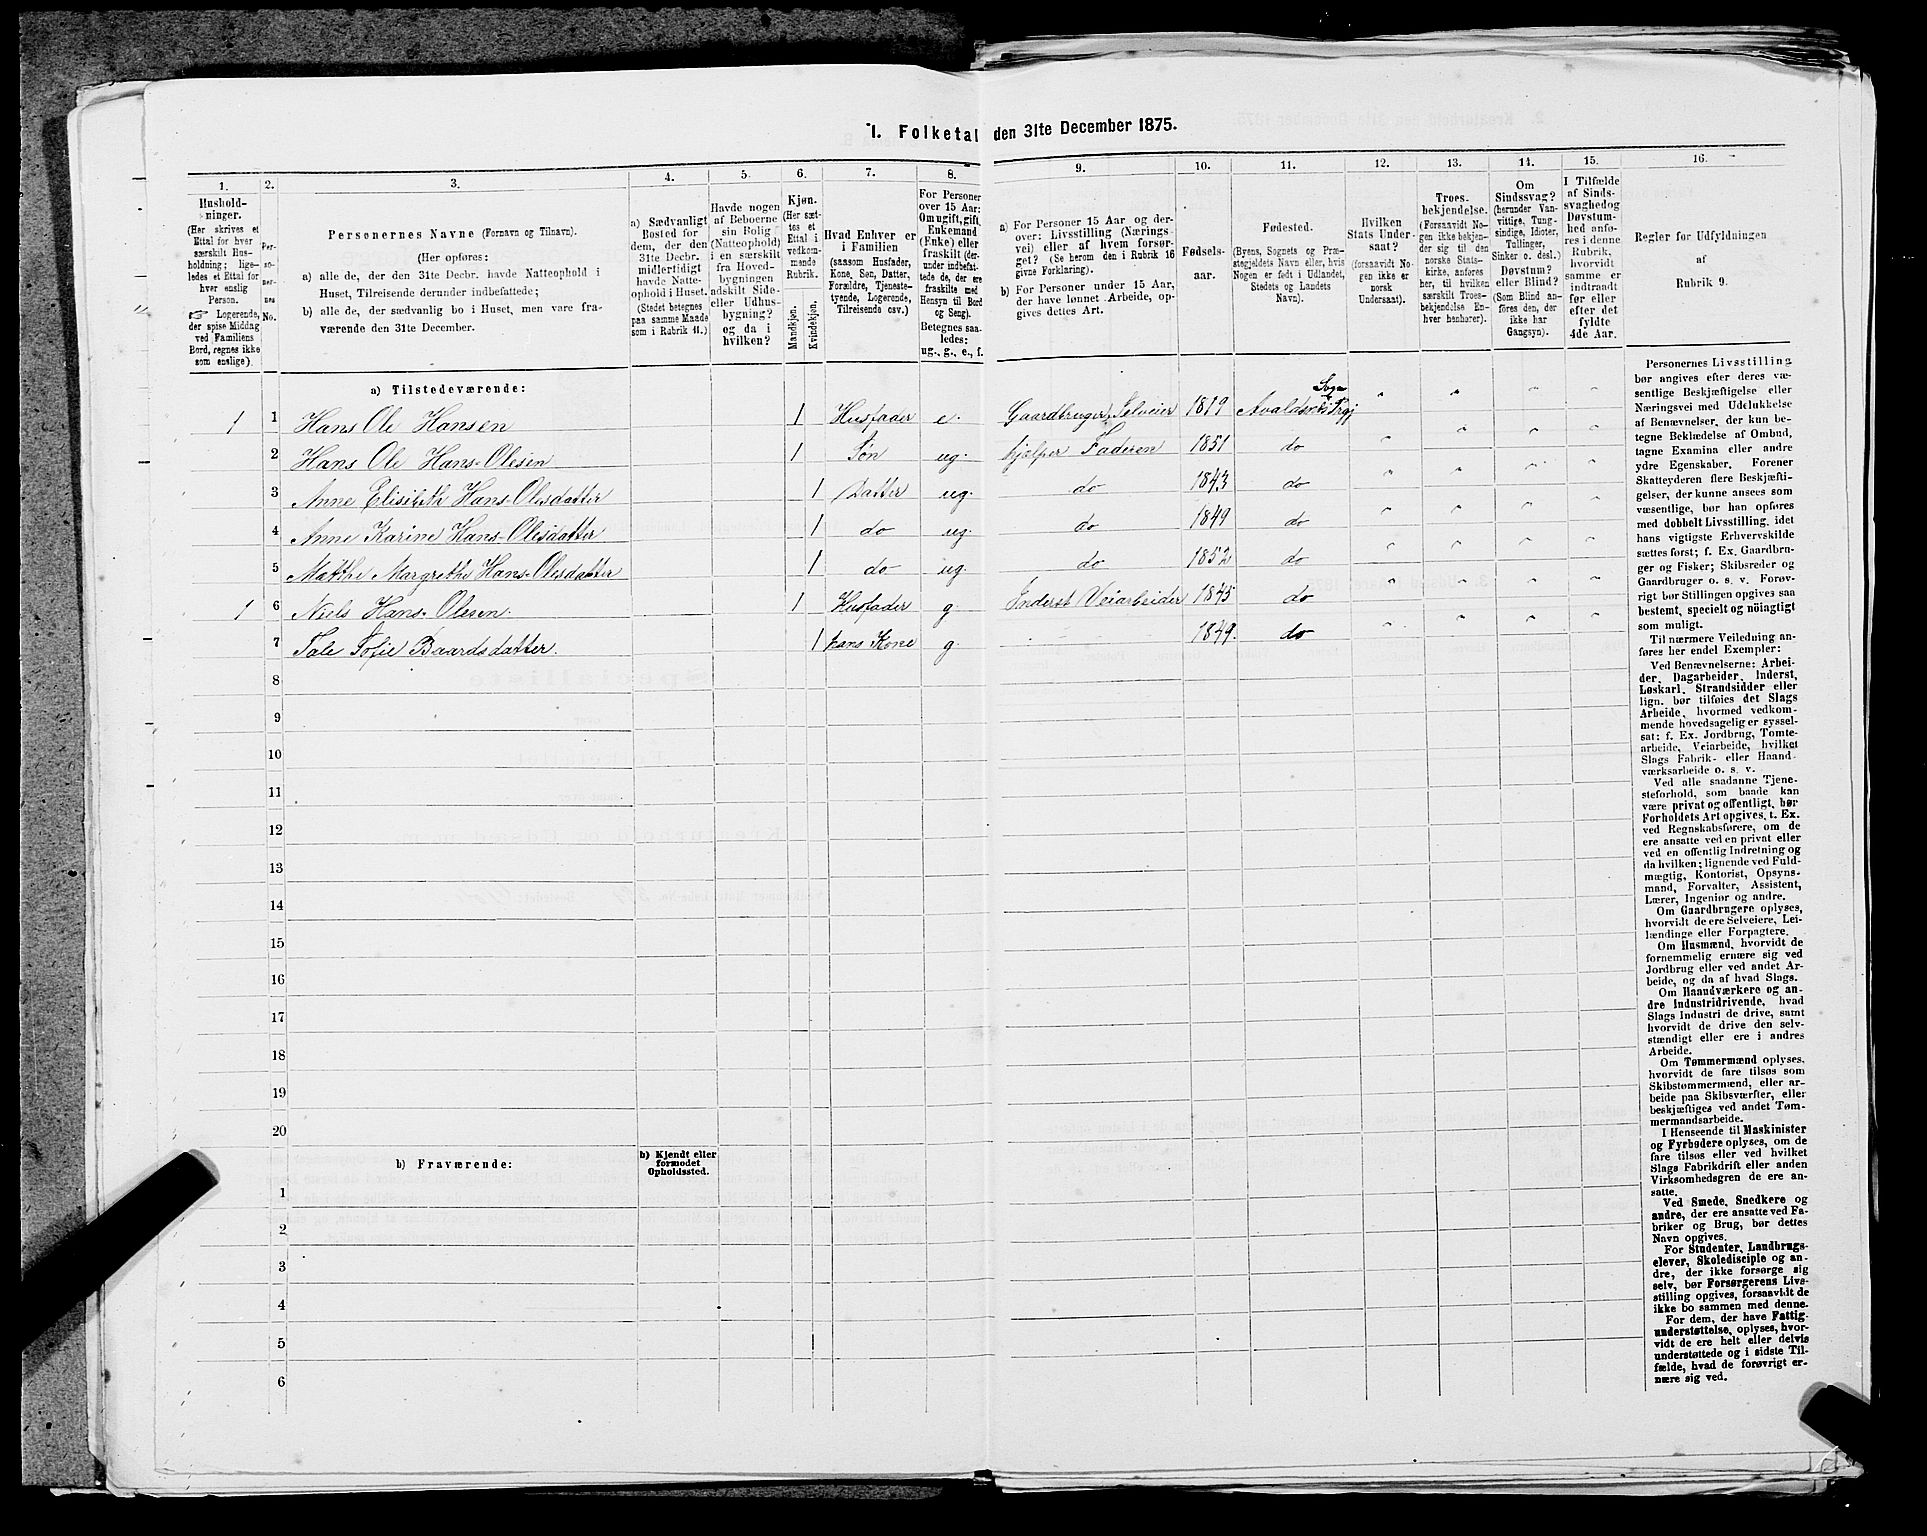 1. Folketal den 31te December 1875.
1.
2.
3.
4.
5.
6.
7.
8.
9.
10.
11.
12.
13.
14.
15.
16.
Hushold-
ninger.
(Her skrives et
Ettal for hver
særskilt Hus-
holdning; lige-
ledes et Ettal for
hver enslig
Person.
☞ Logerende,
der spise Middag
ved Familiens
Bord, regnes ikke
som enslige).
Per-
so-
ner-
nes
No.
Personernes Navne (Fornavn og Tilnavn).
(Her opføres:
a) alle de, der den 31te Decbr. havde Natteophold i
Huset, Tilreisende derunder indbefattede;
b) alle de, der sædvanlig bo i Huset, men vare fra-
værende den 31te December.
a) Sædvanligt
Bosted for
dem, der den
31te Decbr.
midlertidigt
havde Natte-
ophold i Huset.
(Stedet betegnes
paa samme Maade
som i Rubrik 11.)
Havde nogen
af Beboerne
sin Bolig
(Natteophold)
i en særskilt
fra Hoved-
bygningen
adskilt Side-
eller Udhus-
bygning?
og da i
hvilken?
Kjøn.
(Her sæt-
tes et
Ettal i
vedkom-
mende
Rubrik.
Mandkjøn.
Kvindekjøn.
Hvad Enhver er
i Familien
(saasom Husfader,
Kone, Søn, Datter,
Forældre, Tjeneste-
tyende, Logerende,
Tilreisende osv.)
For Personer
over 15 Aar:
Om ugift, gift,
Enkemand
(Enke) eller
fraskilt (der-
under indbefat-
tede de, der ere
fraskilte med
Hensyn til Bord
og Seng).
Betegnes saa-
ledes:
ug., g., e., f.
a) For Personer 15 Aar og der-
over: Livsstilling (Nærings-
vei) eller af hvem forsør-
get? (Se herom den i Rubrik 16
givne Forklaring.)
b) For Personer under 15 Aar,
der have lønnet Arbeide, op-
gives dettes Art.
Fødsels-
aar.
Fødested.
(Byens, Sognets og Præ-
stegjeldets Navn eller, hvis
Nogen er født i Udlandet,
Stedets og Landets
Navn).
Hvilken
Stats Under-
saat?
(forsaavidt No-
gen ikke er
norsk
Undersaat).
Troes-
bekjendelse.
(Forsaavidt No-
gen ikke bekjen-
der sig til den
norske Stats-
kirke, anføres
her, til hvilken
særskilt Troes-
bekjendelse En-
hver henhører).
Om
Sindssvag?
(herunder Van-
vittige, Tung-
sindige, Idioter,
Tullinger,
Sinker o. desl.)
Døvstum?
eller Blind?
(Som Blind an-
føres den, der
ikke har
Gangsyn).
I Tilfælde
af Sinds-
svaghed og
Døvstum-
hed anfø-
res i denne
Rubrik,
hvorvidt
samme er
indtraadt
før eller
efter det
fyldte
4de Aar.
Regler for Udfyldningen
af
Rubrik 9.
a) Tilstedeværende:
1 1 Hans Ole Hansen 1 Husfader e. Gaardbruger, Selveier 1819 Avaldsnes Sogn & Prgj " " " "
2 Hans Ole Hans-Olesen 1 Søn ug. hjelper Faderen 1851 do " " " "
3 Anne Elisibeth Hans-Olesdatter 1 Datter ug. do 1843 do " " " "
4 Anne Karine Hans-Olesdatter 1 do ug. do 1849 do " " " "
5 Matthe Margrethe Hans-Olesdatter 1 do ug. do 1852 do " " " "
1 6 Niels Hans-Olesen. 1 Husfader g. Inderst Veiarbeider 1845 do " " " "
7 Tale Sofie Baardsdatter. 1 hans Kone g. 1849. do " " " "
8
9
10
11
12
13
14
15
16
17
18
19
20
b) Fraværende:
b) Kjendt eller
formodet
Opholdssted.
1
2
3
4
5
6
Personernes Livsstilling
bør angives efter deres væ-
sentlige Beskjæftigelse eller
Næringsvei med Udelukkelse
af Benævnelser, der kun be-
tegne Beklædelse af Ombud,
tagne Examina eller andre
ydre Egenskaber. Forener
Skatteyderen flere Beskjæfti-
gelser, der kunne ansees som
væsentlige, bør han opføres
med dobbelt Livsstilling, idet
hans vigtigste Erhvervskilde
sættes først; f. Ex. Gaardbru-
ger og Fisker; Skibsreder og
Gaardbruger o. s. v. Forøv-
rigt bør Stillingen opgives saa
bestemt, specielt og nøiagtigt
som muligt.
Til nærmere Veiledning an-
føres her endel Exempler:
Ved Benævnelserne: Arbei-
der, Dagarbeider, Inderst,
Løskarl, Strandsidder eller
lign. bør tilføies det Slags
Arbeide, hvormed vedkom-
mende hovedsagelig er syssel-
sat; f. Ex. Jordbrug, Tomte-
arbeide, Veiarbeide, hvilket
Slags Fabrik- eller Haand-
værksarbeide o. s. v.
Ved alle saadanne Tjene-
steforhold, som baade kan
være privat og offentligt, bør
Forholdets Art opgives, t. Ex.
ved Regnskabsførere, om de
ere ansatte ved en privat eller
ved en offentlig Indretning og
da hvilken; lignende ved Fuld-
mægtig, Kontorist, Opsyns-
mand, Forvalter, Assistent,
Lærer, Ingeniør og andre.
Om Gaardbrugere oplyses,
hvorvidt de ere Selveiere, Lei-
lændinge eller Forpagtere.
Om Husmænd, hvorvidt de
fornemmelig ernære sig ved
Jordbrug eller ved andet Ar-
beide, og da af hvad Slags.
Om Haandværkere og an-
dre Industridrivende, hvad
Slags Industri de drive, samt
hvorvidt de drive den selv-
stændigt eller ere i andres
Arbeide.
Om Tømmermænd oplyses,
hvorvidt de fare tilsøs som
Skibstømmermænd, eller ar-
beide paa Skibsværfter, eller
beskjæftiges ved andet Tøm-
mermandsarbeide.
I Henseende til Maskinister
og Fyrbødere oplyses, om de
fare tilsøs eller ved hvilket
Slags Fabrikdrift eller anden
Virksomhedsgren de ere an-
satte.
Ved Smede, Snedkere og
andre, der ere ansatte ved Fa-
briker og Brug, bør dettes
Navn opgives.
For Studenter, Landbrugs-
elever, Skoledisciple og an-
dre, der ikke forsørge sig
selv, bør Forsørgerens Livs-
stilling opgives, forsaavidt de
ikke bo sammen med denne.
For dem, der have Fattig-
understøttelse, oplyses, hvor-
vidt de ere helt eller delvis
understøttede og i sidste Til-
fælde, hvad de forøvrigt er-
nære sig ved.